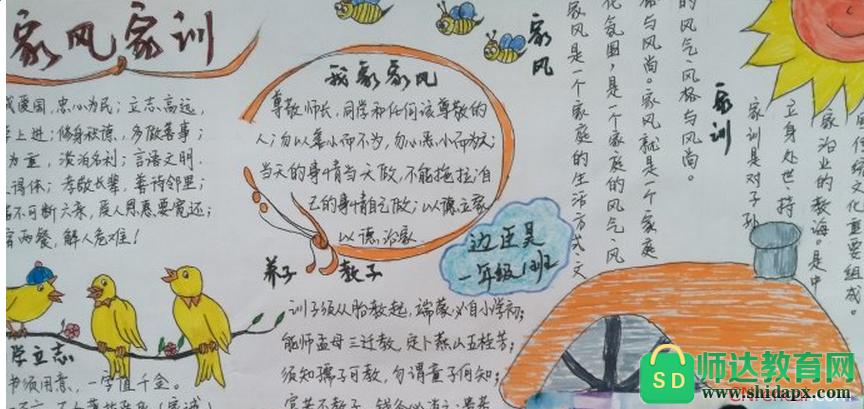 家风家训
我爱国，忠心为民；立志高远，
上进；修身秘德，多做善事；
为重，淡泊名利；言语文明．
得体；孝敬长辈，善待邻里；
不可断六亲，受人恩惠要宽还；
两餐，解人危难！
我家家风
尊敬师长，同学和任何该尊敬的
人；勿以善小而不为，勿以恶小而为之；
当天的事情当天做，不能拖拉；自
己的事情自己做；以德立家，
以德治家．
边臣昊
一年级1班
养子 教子
训子须从胎教起，端蒙必自小学初；
能师孟母三迁教，定卜燕山五桂芳；
须知孺子可教，勿谓童子何知；
学立志
书须用意，一字值千金。
家风
家风是一个家庭的生活方式、文
化氛围，是一个家庭的风气、风
格与风尚。家风就是一个家庭
的风气、风格与风尚。
家训
家训是对子孙
立身处世、持
家治业的教诲。是中
国传统文化重要组成。
师达教育网
www.shidapx.com
SD